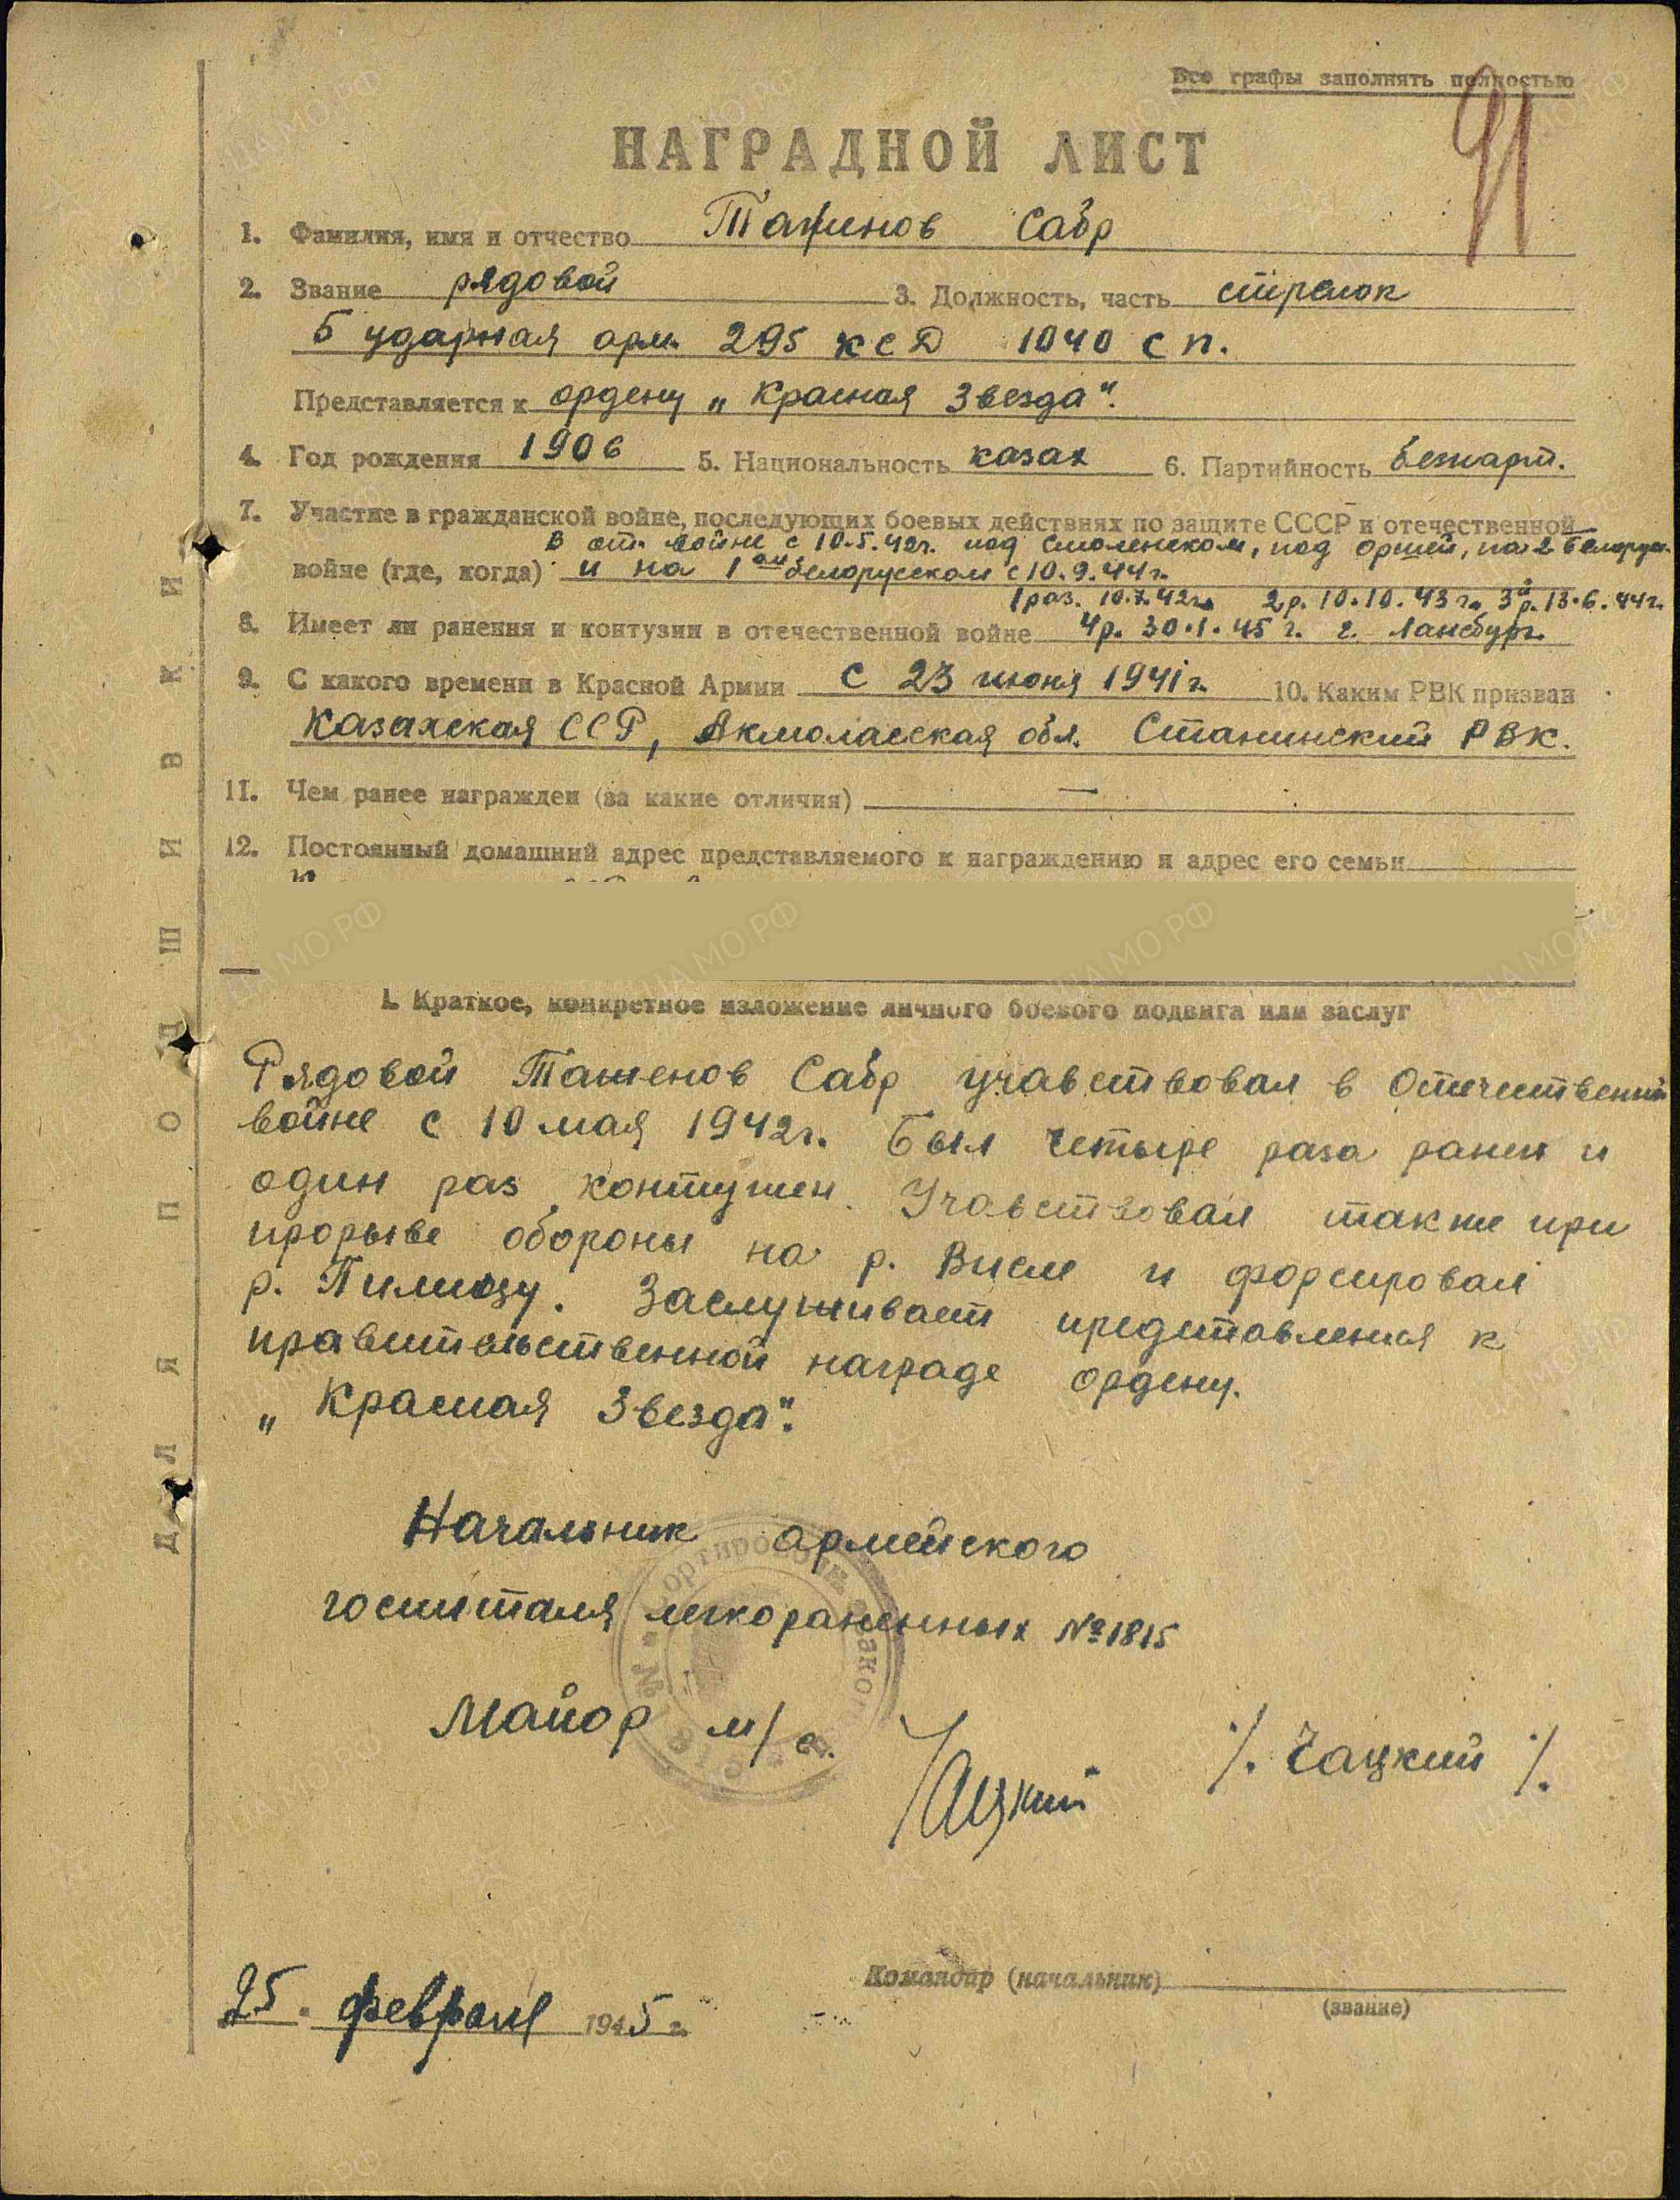 Все графы заполнять полностью
91
НАГРАДНОЙ ЛИСТ
1. Фамилия, имя и отчество Ташенов Сабр
2. Звание рядовой 3. Должность, часть стрелок
5 ударная арм. 295 КСД 1040 с п.
Представляется к ордену „Красная Звезда".
4. Год рождения 1906 5. Национальность казах 6. Партийность беспарт.
7. Участие в гражданской войне, последующих боевых действиях по защите СССР и отечественной
В от. войне с 10.5.42г. под Смоленском, под Оршей, на 2 Белорус.
войне (где, когда) и на 1ом белорусском с 10.9.44г.
1 раз. 10.7.42г. 2р. 10.10.43г. 3й р. 13.6.44г.
8. Имеет ли ранения и контузии в отечественной войне 4р. 30.1.45 г. г. Лансбург.
9. С какого времени в Красной Армии с 23 июня 1941г. 10. Каким РВК призван
Казахская ССР, Акмоласская обл. Сталинский РВК.
11. Чем ранее награжден (за какие отличия) —
12. Постоянный домашний адрес представляемого к награждению и адрес его семьи
I. Краткое, конкретное изложение личного боевого подвига или заслуг
Рядовой Ташенов Сабр учавствовал в Отечественной
войне с 10 мая 1942г. Был четыре раза ранен и
один раз контужен. Учавствовал также при
прорыве обороны на р. Висле и форсировал
р. Пилицу. Заслуживает представления к
правительственной награде ордену.
„Красная Звезда".
Начальник армейского
госпиталя легкораненных №1815
Майор м/с.
Чацкий
/. Чацкий /.
25. февраля 1945 г.
Командир (начальник)
(звание)
ДЛЯ ПОДШИВКИ
ЦАМО РФ